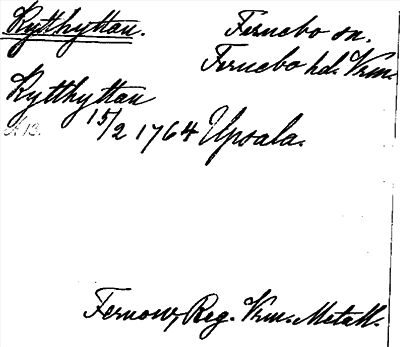 Rytthyttan. Fernebo sn.
Fernebo hd. Vrm.
Rytthyttan
15/2 1764 Upsala.
Fernow, Reg. Vrm. Metall.